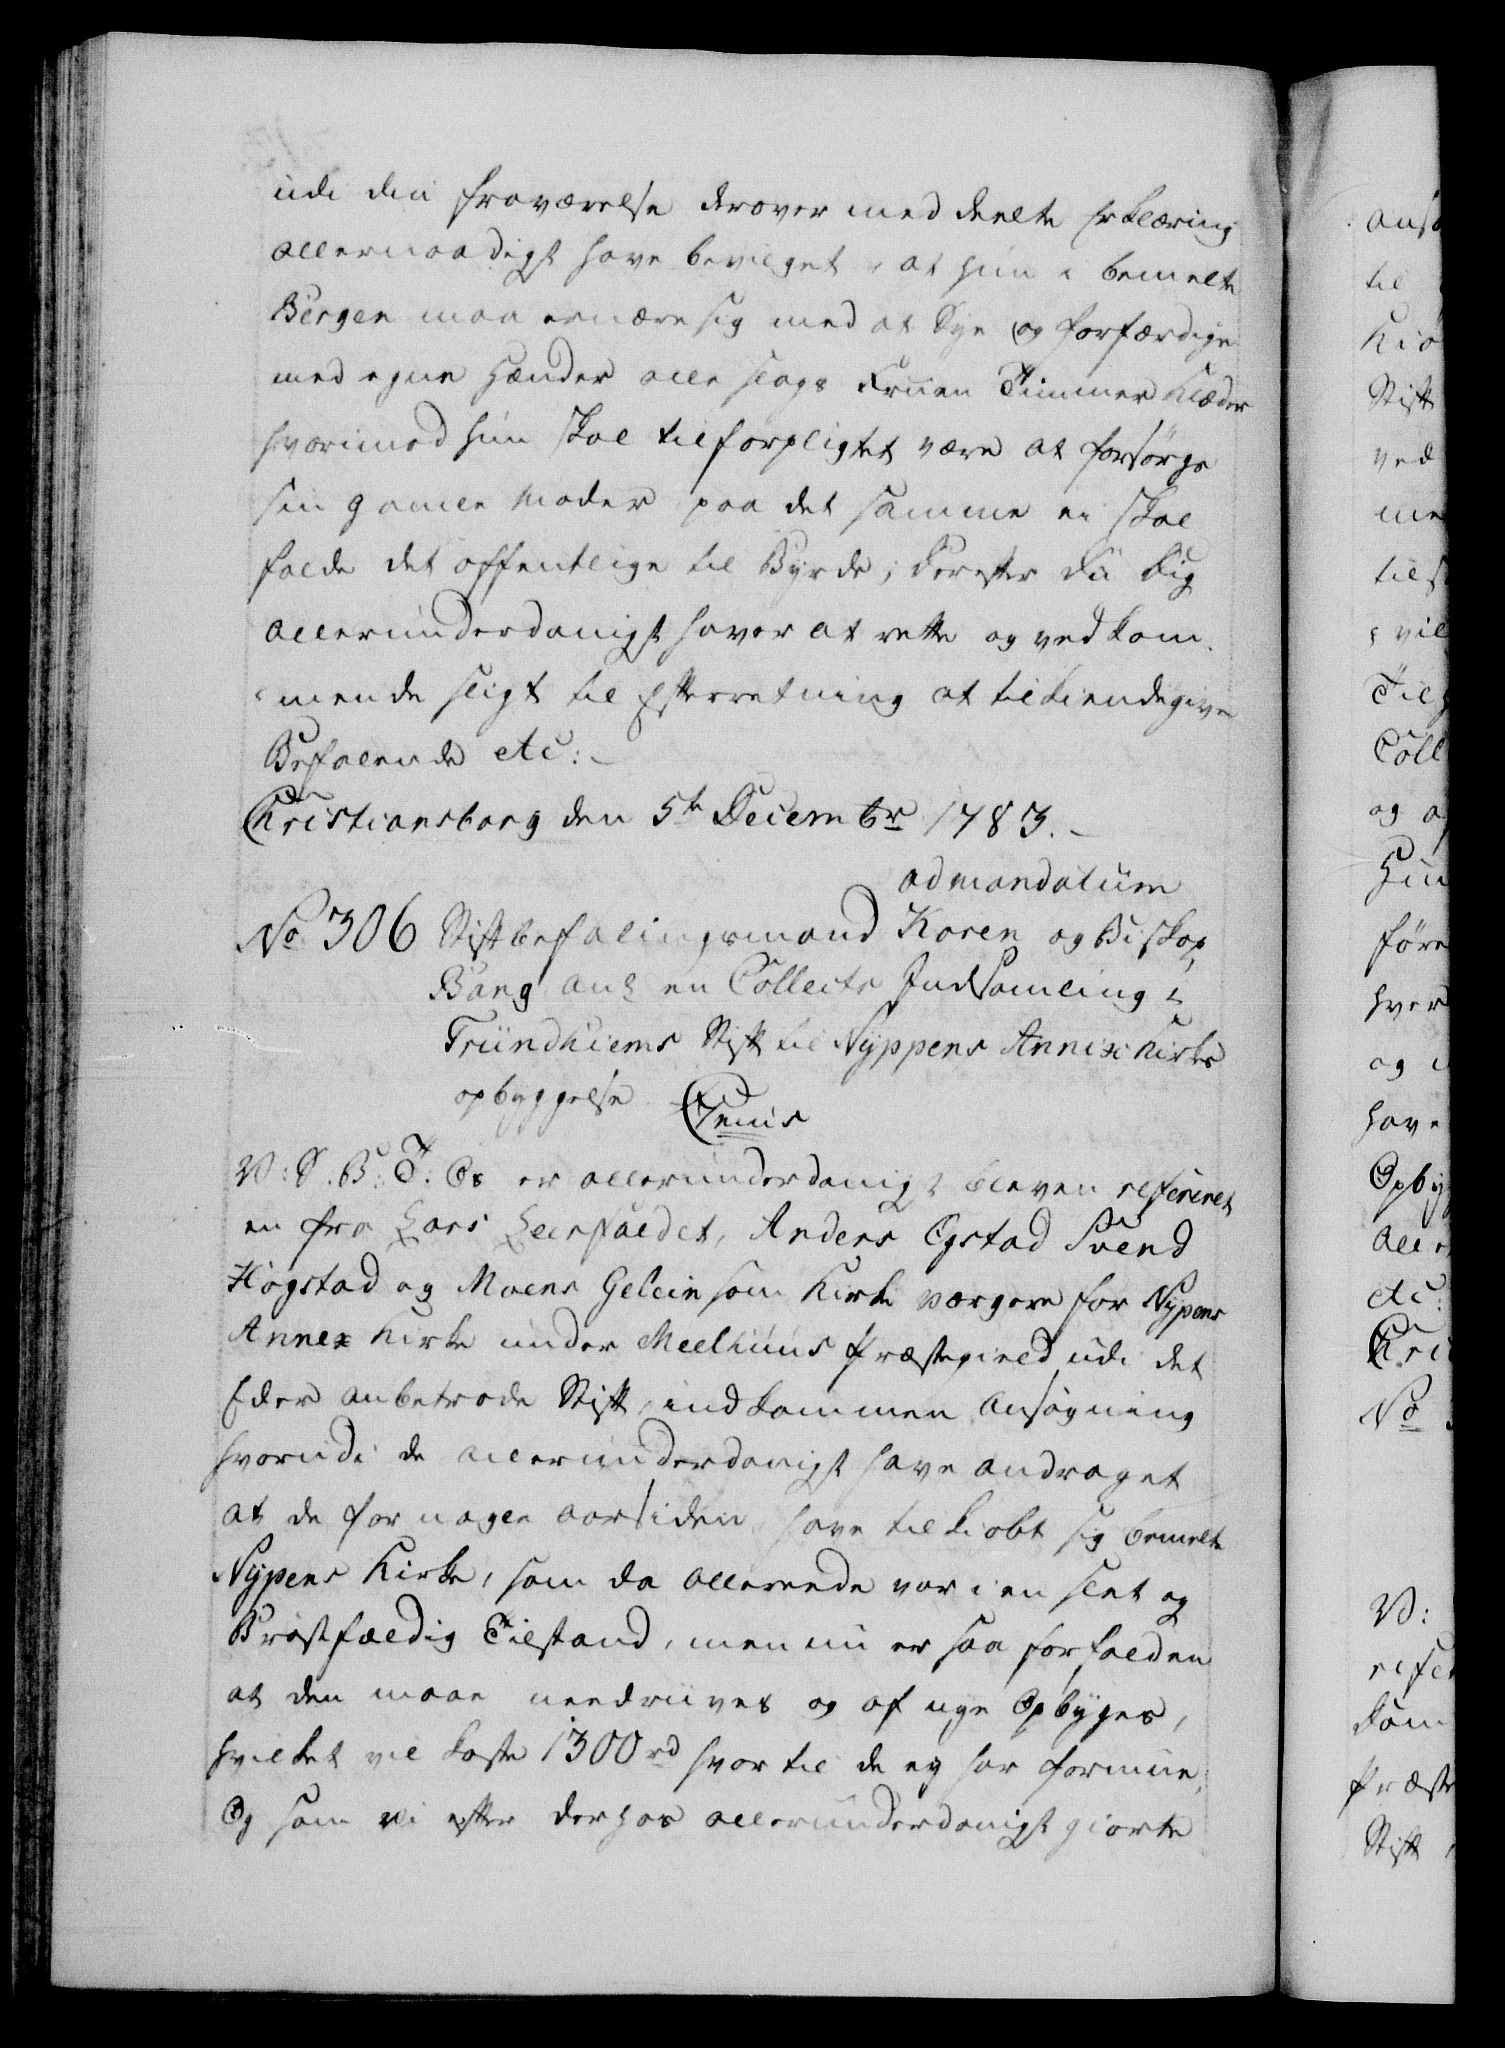 udi din fraværelse derover meddeelte Erklæring
allernaadigst have bevilget, at hun i bemelte
Bergen maa ernære sig med at Sye og forfærdige
med egne Hænder alle slags Fruen Timmer Klæder
hvorimod hun skal tilforpligtet være at forsørge
sin gamle Moder, paa det samme ei skal
falde det offentlige til Byrde; Derefter du dig
allerunderdanigst haver at rette og vedkom-
mende sligt til Efterretning at tilkiendegive
Befalende etc:
Christiansborg den 5te Decembr 1783.
ad mandatum
No 306 Stiftbefalingsmand Koren og Biskop
Bang anl en Collects Indsamling i
Trundhiems Stift til Nyppens Annex Kirkes
opbyggelse
V: S. B: T: Os er allerunderdanigst bleven refereret
en fra Lars Leerfaldet, Anders Ogstad Svend
Høgstad og Moens Gelein som Kirke værgere for Nypens
Annex Kirke under Meelhuus Præstegield udi det
Eder anbetroede Stift, indkommen Ansøgning
hvorudi de allerunderdanigst have andraget
at de for nogle aar siden have tilkiøbt sig bemelte
Nypens Kirke, som da allerede var i en slet og
Brøstfældig Tilstand, men nu er saa forfalden
at den maae needriives og af nye Opbyges,
hvilket vil koste 1300 rd hvortil de ey har formue,
Og som vi efter derhos allerunderdanigst giorte